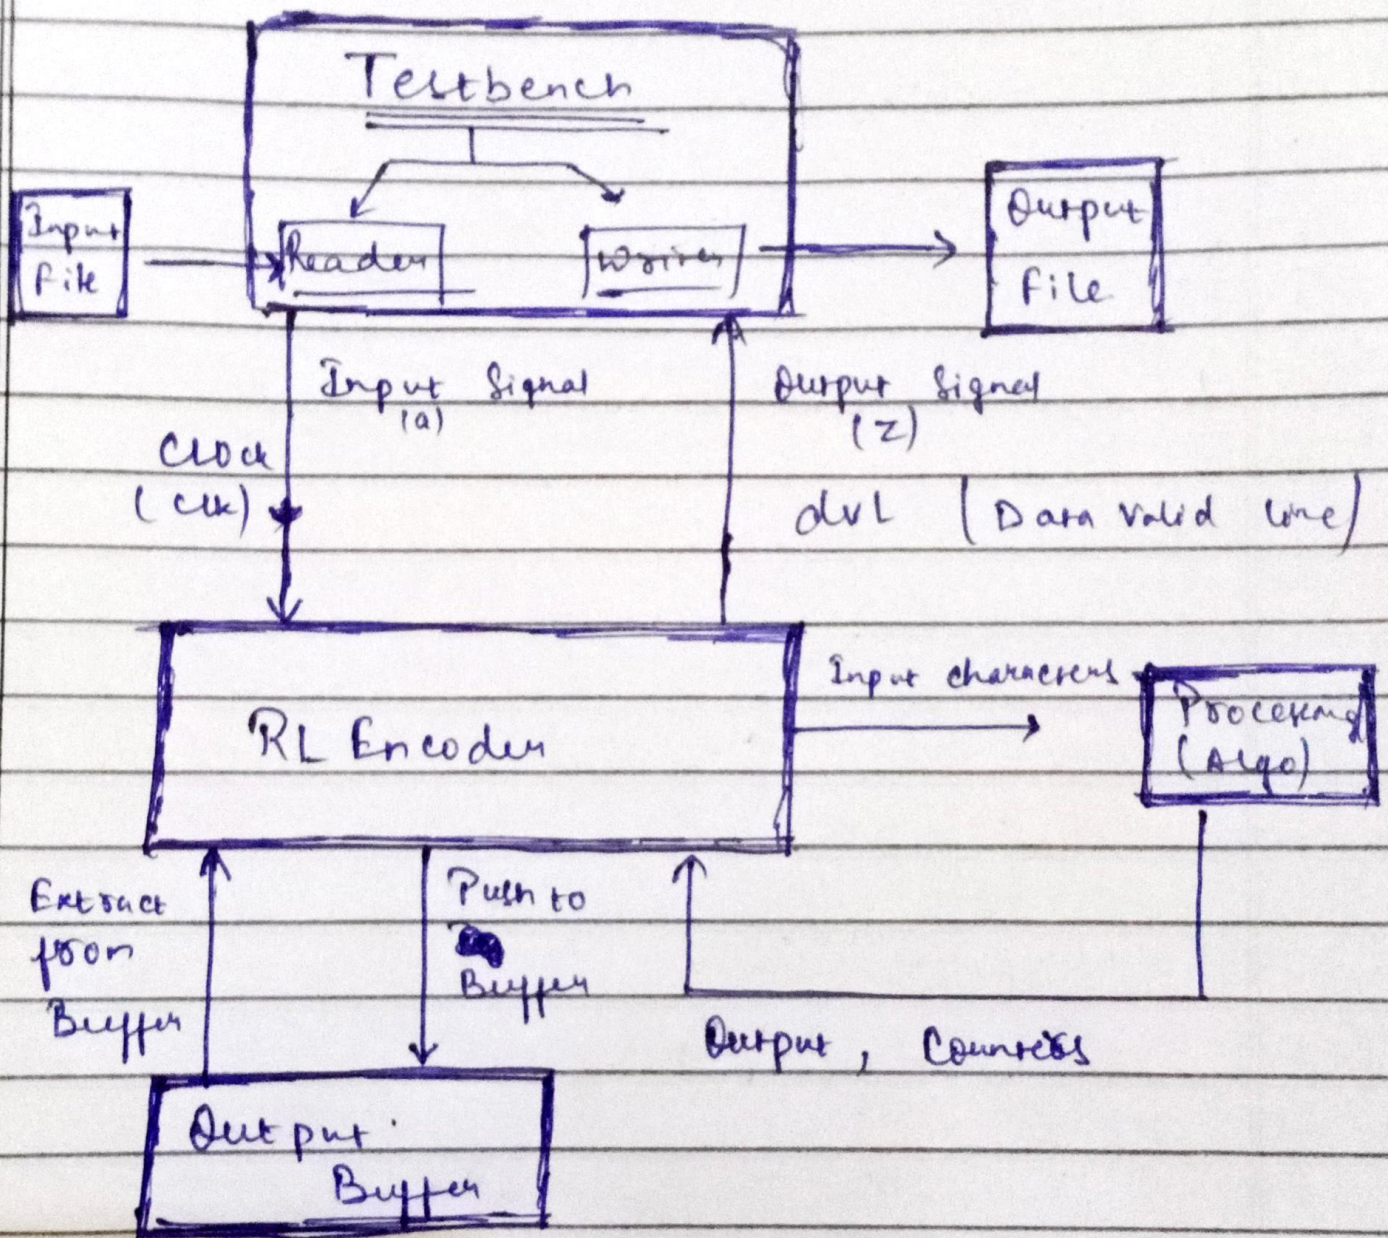 Testbench
Input
File
Reader
Writer
Output
File
Input Signal
(a)
Output Signal
(z)
Clock
(Clk)
dvl (Data Valid line)
RL Encoder
Input characters
Processing
(Algo)
Extract
from
Buffer
Push to
Buffer
Output, Counters
Output
Buffer